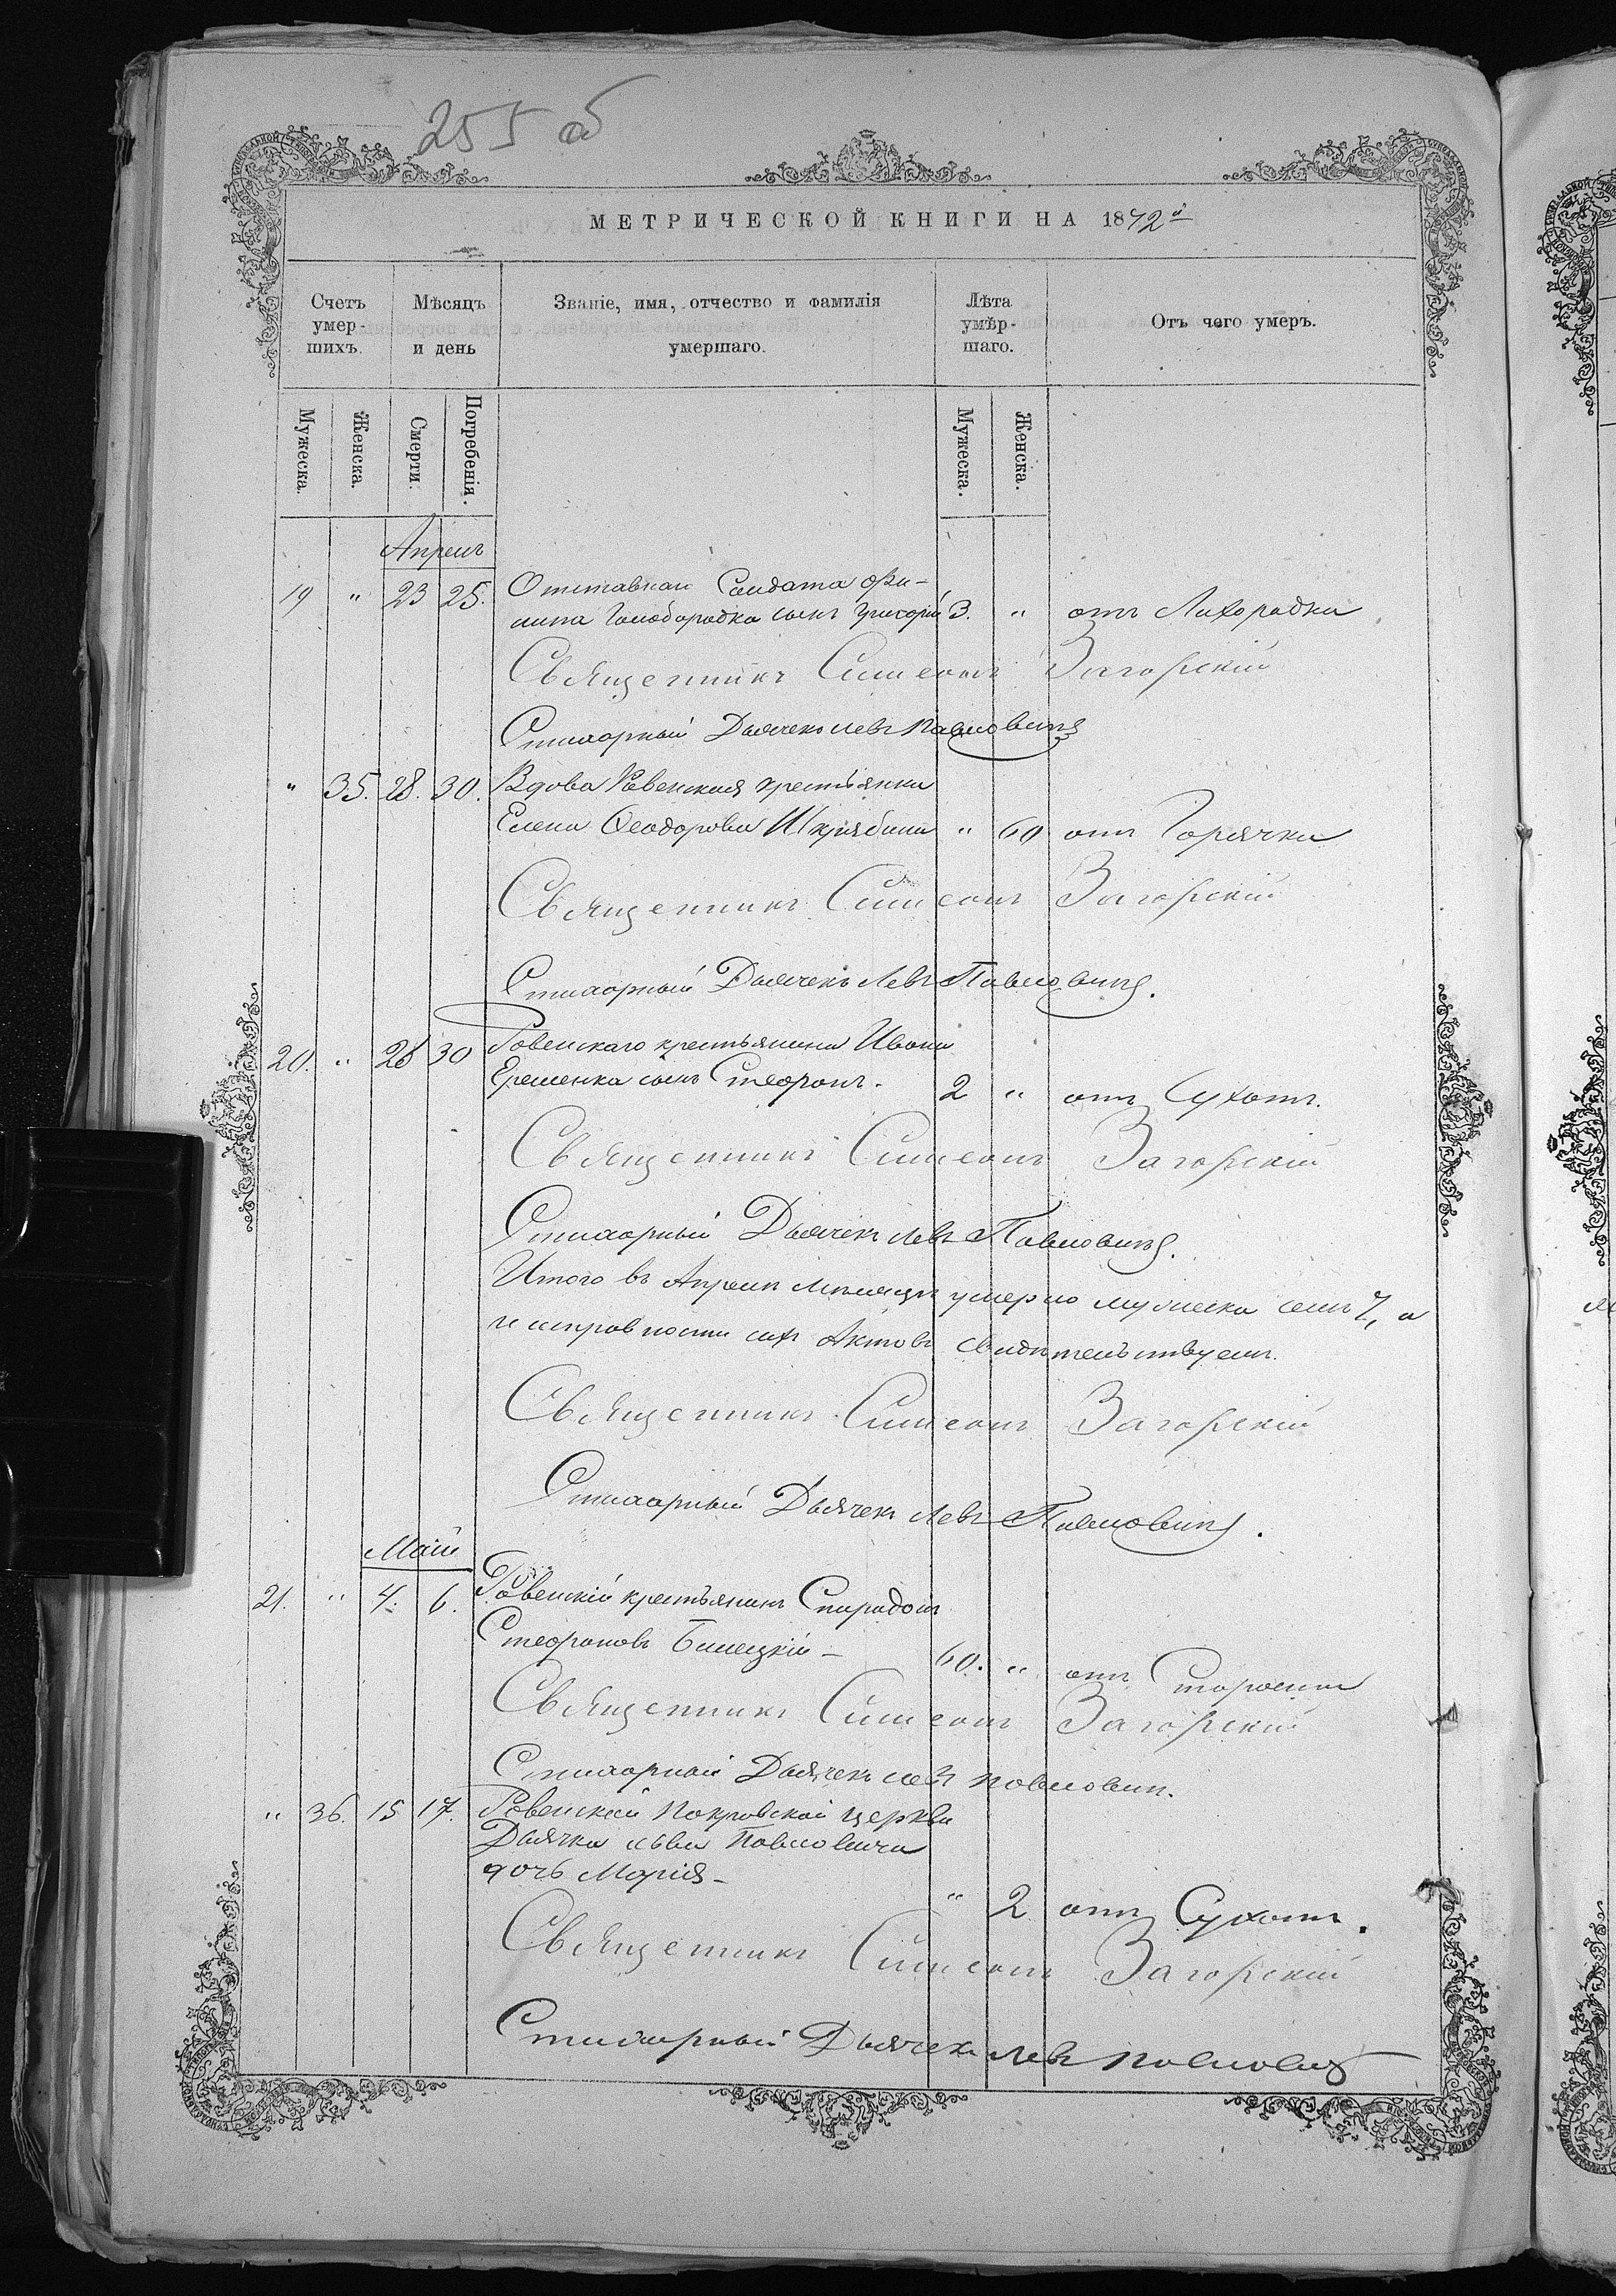 255 об
МЕТРИЧЕСКОЙ КНИГИ НА 1872й
Счетъ умер-шихъ.
Мѣсяцъ и день
Званіе, имя, отчество и фамилія умершаго.
Лѣта умер-шаго.
Отъ чего умеръ.
Мужеска.
Женска.
Смерти.
Погребенія.
Мужеска.
Женска.
Апрель
19 " 23 25. Отставнаго Солдата Фи-
липа Голобородка сынъ Григорій 3. " отъ Лихорадки
Священникъ Симеонъ Загорскій
Стихарный Дьячекъ Левъ Павловичъ
" 35. 28. 30. Вдова Ровенская крестьянка
Елена Феодорова Шкрябина " 60 отъ Горячки
Священникъ Симеонъ Загорскій
Стихарный Дьячекъ Левъ Павловичъ.
20. " 28 30 Ровенскаго крестьянина Ивана
Еременка сынъ Стефанъ. 2 " отъ Сухотъ.
Священникъ Симеонъ Загорскій
Стихарный Дьячекъ Левъ Павловичъ.
Итого въ Апрелѣ мѣсяцѣ умерло мужеска семь 7, а
исправности сихъ Актовъ свидѣтельствуемъ.
Священникъ Симеонъ Загорскій
Стихарный Дьячекъ Левъ Павловичъ.
Май
21. " 4. 6. Ровенскій крестьянинъ Спиридонъ
Стефановъ Билецкій 60. " отъ Старости
Священникъ Симеонъ Загорскій
Стихарный Дьячекъ Левъ Павловичъ.
" 36. 15 17. Ровенской Покровской церкви
Дьячка Льва Павловича
дочь Марія " 2 отъ Сухотъ.
Священникъ Симеонъ Загорскій
Стихарный Дьячекъ Левъ Павловичъ